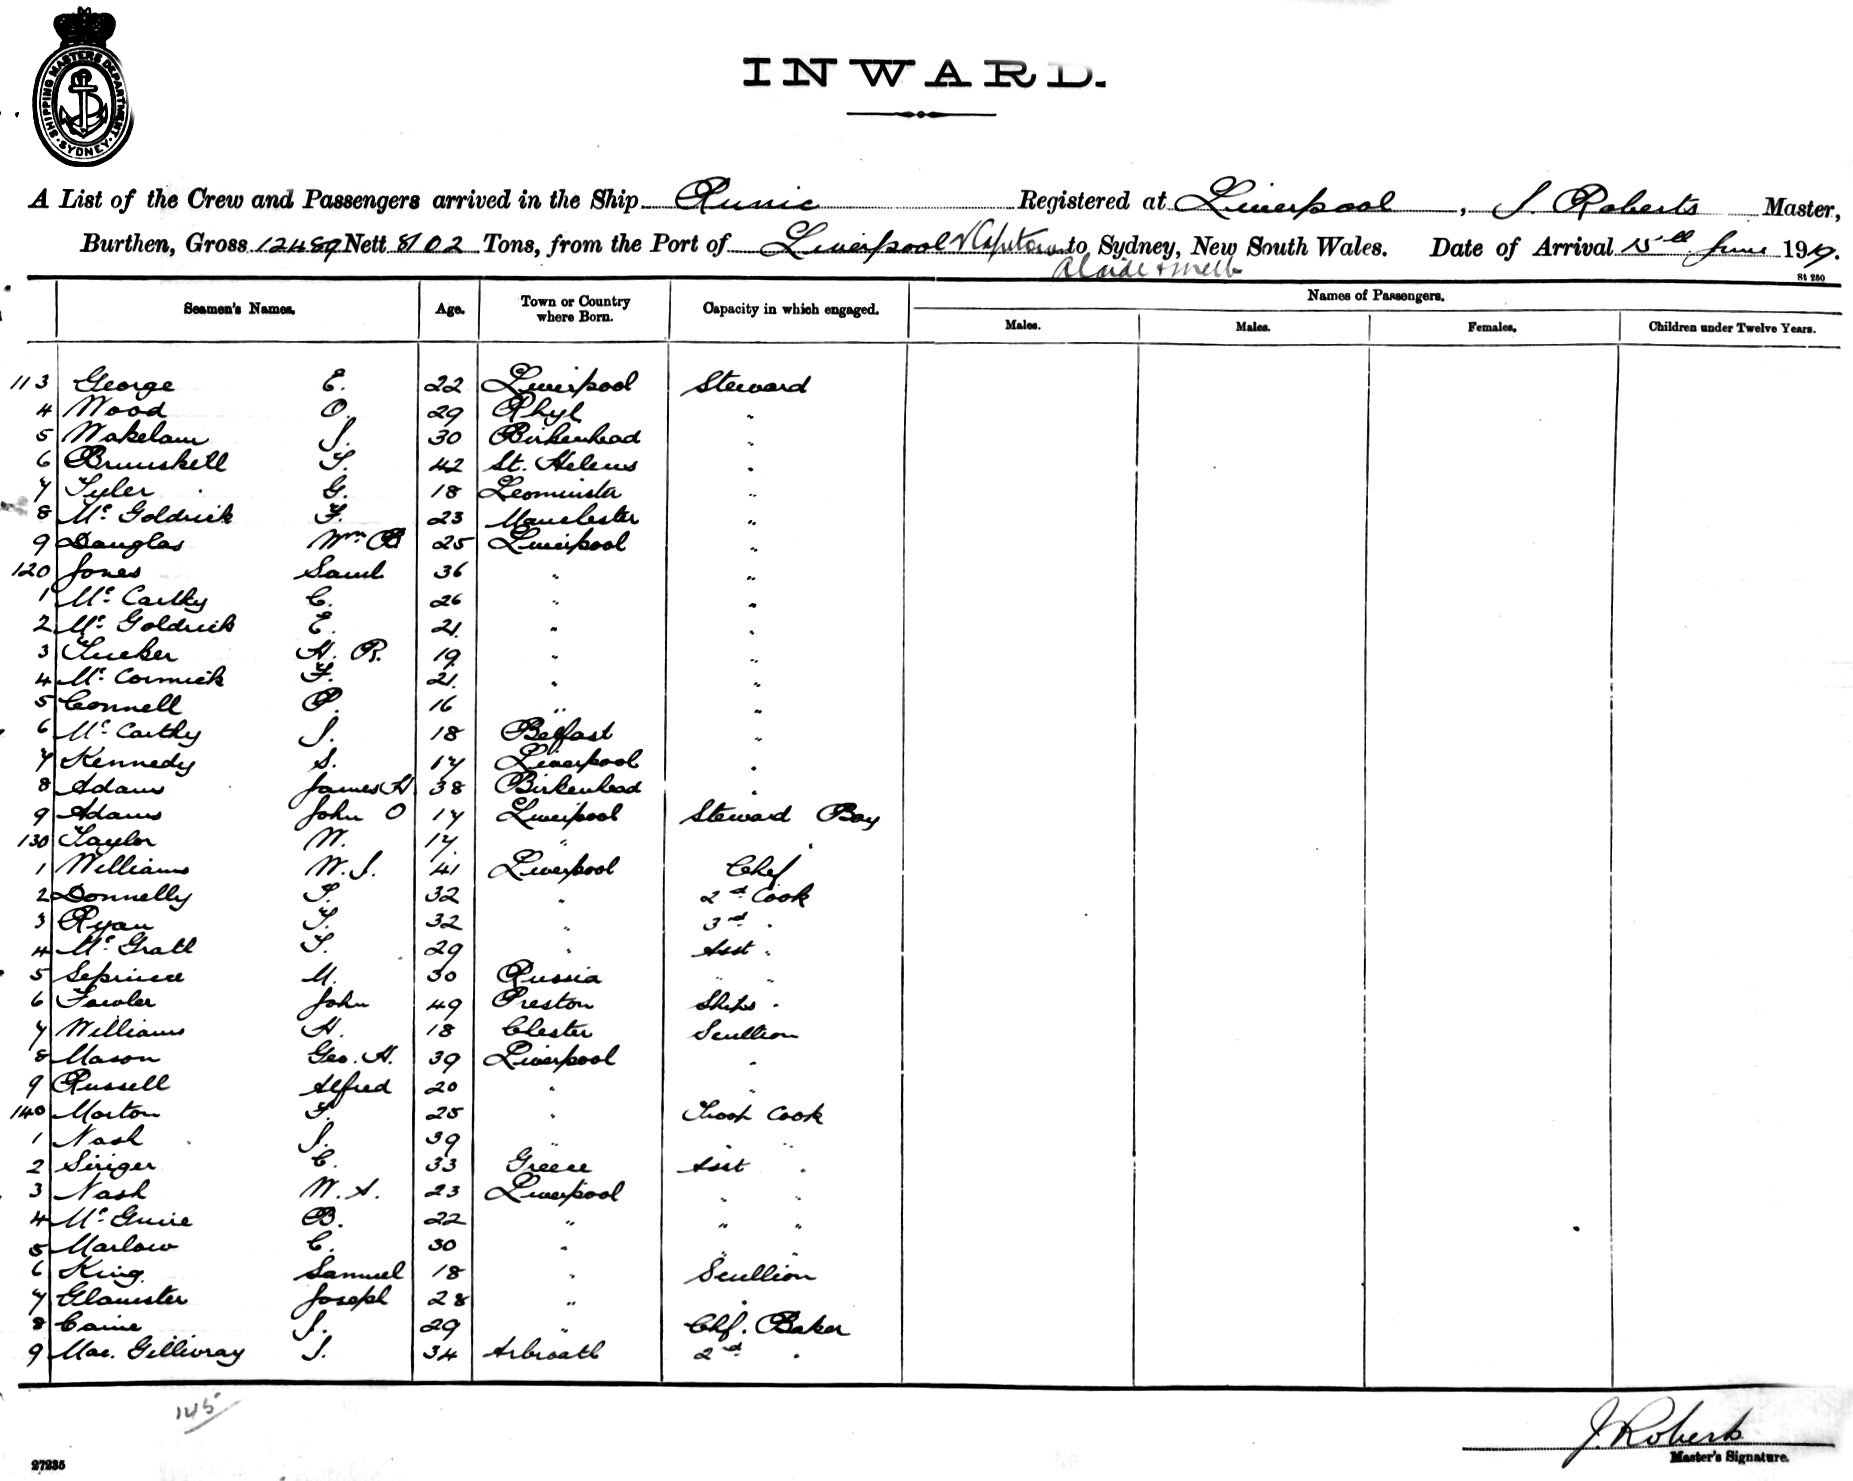 SHIPPING MASTERS DEPARTMENT · SYDNEY ·
INWARD.
A List of the Crew and Passengers arrived in the Ship Runic Registered at Liverpool, J. Roberts Master,
Burthen, Gross 12489 Nett 8102 Tons, from the Port of Liverpool v Capetown to Sydney, New South Wales. Date of Arrival 15th June 1919.
& Melb
St 250
Seamen's Names. Age. Town or Country where Born. Capacity in which engaged. Names of Passengers.
Males. Males. Females. Children under Twelve Years.
113 George E. 22 Liverpool Steward
4 Wood O. 29 Rhyl "
5 Wakelam J. 30 Birkenhead "
6 Brunskell T. 42 St. Helens "
7 Tyler G. 18 Leominster "
8 Mc Goldrick F. 23 Manchester "
9 Douglas Wm B 25 Liverpool "
120 Jones Saml 36 " "
1 Mc Carthy C. 26 " "
2 Mc Goldrick E. 21 " "
3 Tucker H. R. 19 " "
4 Mc Cormick F. 21 " "
5 Connell P. 16 " "
6 Mc Carthy J. 18 Belfast "
7 Kennedy S. 17 Liverpool "
8 Adams James H 38 Birkenhead "
9 Adams John O 17 Liverpool Steward Boy
130 Taylor W. 17 " "
1 Williams W. J. 41 Liverpool Chef
2 Donnelly T. 32 " 2nd Cook
3 Ryan T. 32 " 3rd "
4 Mc Grath T. 29 " Asst "
5 M. 30 Russia " "
6 Fowler John 49 Preston Ships "
7 Williams H. 18 Chester Scullion
8 Mason Geo. H. 39 Liverpool "
9 Russell Alfred 20 " "
140 Morton F. 25 " Troop Cook
1 Nash J. 39 " " "
2 Siriger C. 33 Greece Asst "
3 Nash W. S. 23 Liverpool " "
4 Mc Guire B. 22 " " "
5 Marlow C. 30 " " "
6 King Samuel 18 " Scullion
7 Glanister Joseph 28 " "
8 Caine J. 29 " Chf. Baker
9 Mac. Gillivray J. 34 Arbroath 2nd "
145
J. Roberts
Master's Signature.
27235